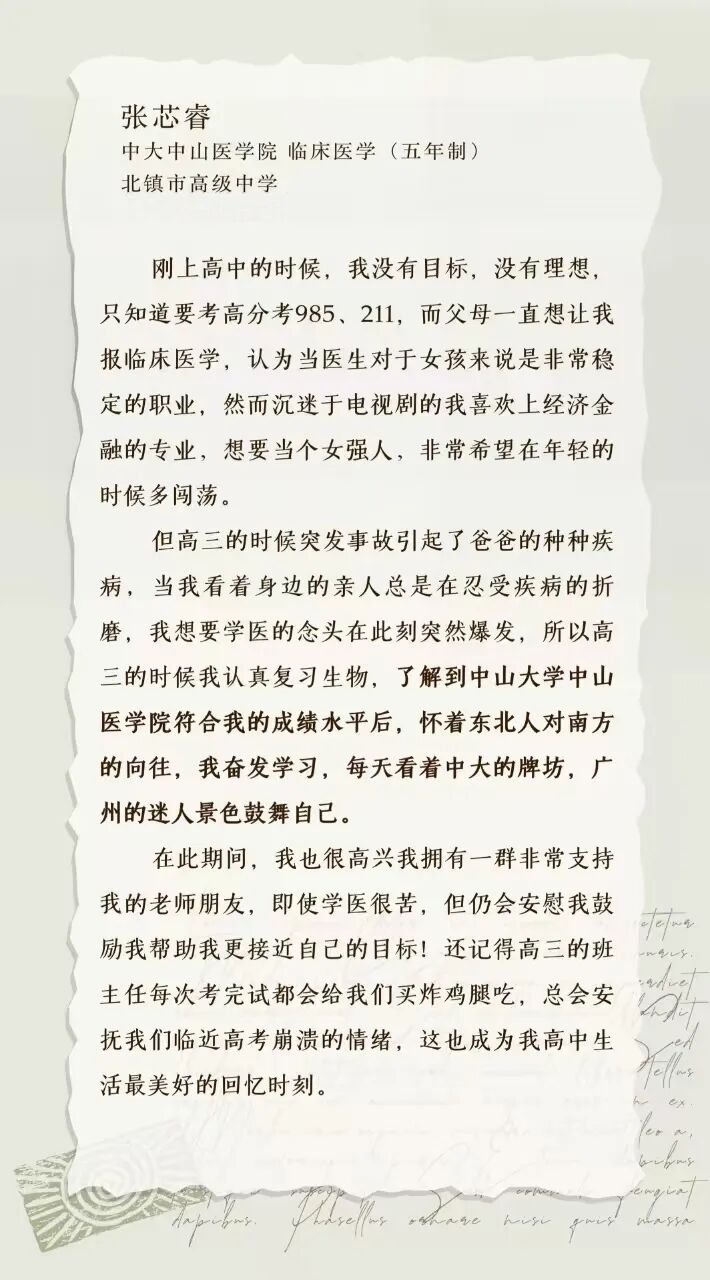 张芯睿
中大中山医学院 临床医学（五年制）
北镇市高级中学
刚上高中的时候，我没有目标，没有理想，
只知道要考高分考985、211，而父母一直想让我
报临床医学，认为当医生对于女孩来说是非常稳
定的职业，然而沉迷于电视剧的我喜欢上经济金
融的专业，想要当个女强人，非常希望在年轻的
时候多闯荡。
但高三的时候突发事故引起了爸爸的种种疾
病，当我看着身边的亲人总是在忍受疾病的折
磨，我想要学医的念头在此刻突然爆发，所以高
三的时候我认真复习生物，了解到中山大学中山
医学院符合我的成绩水平后，怀着东北人对南方
的向往，我奋发学习，每天看着中大的牌坊，广
州的迷人景色鼓舞自己。
在此期间，我也很高兴我拥有一群非常支持
我的老师朋友，即使学医很苦，但仍会安慰我鼓
励我帮助我更接近自己的目标！还记得高三的班
主任每次考完试都会给我们买炸鸡腿吃，总会安
抚我们临近高考崩溃的情绪，这也成为我高中生
活最美好的回忆时刻。
ed
tellus
ex.
leo a,
dapibus. Phasellus ornare nisi quis massa